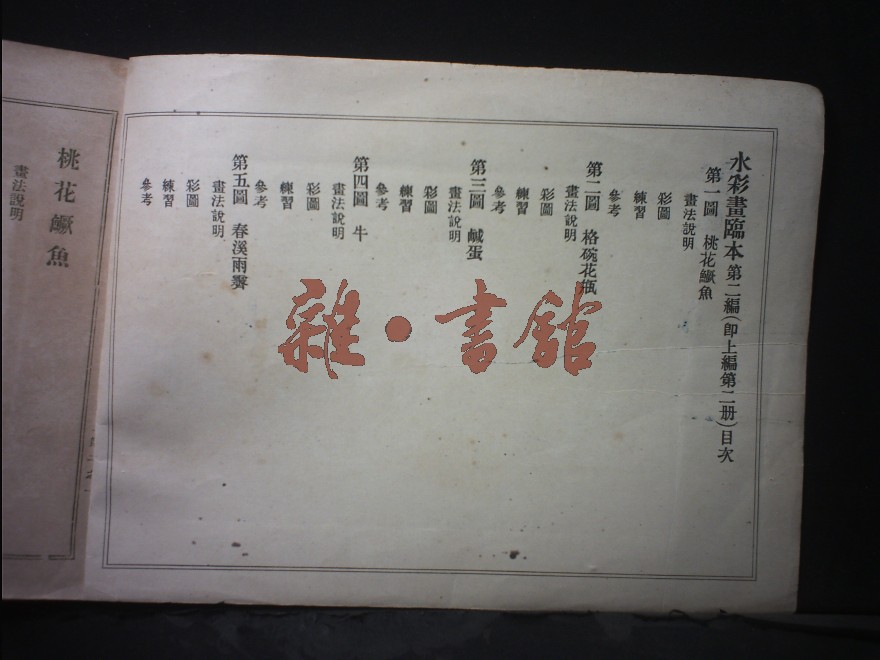 水彩畫臨本 第二編(卽上編第二册)目次
第一圖 桃花鱖魚
畫法說明
彩圖
練習
參考
第二圖 格碗花瓶
畫法說明
彩圖
練習
參考
第三圖 鹹蛋
畫法說明
彩圖
練習
參考
第四圖 牛
畫法說明
彩圖
練習
參考
第五圖 春溪雨霽
畫法說明
彩圖
練習
參考
桃花鱖魚
畫法說明
雜·書館